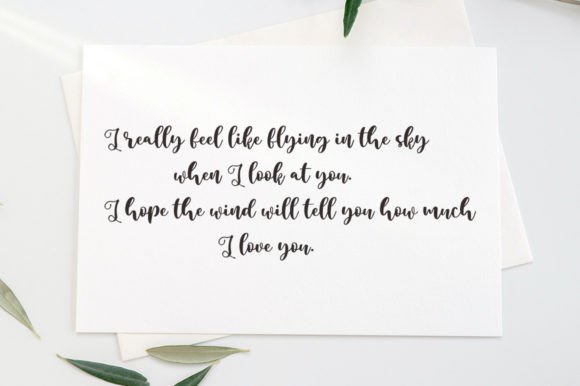 I really feel like flying in the sky
when I look at you.
I hope the wind will tell you how much
I love you.